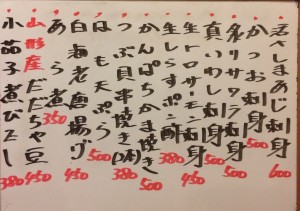 活〆しまあじ刺身 600
かつお刺身 500
タリサワラ刺身 500
真いわし刺身 450
生サーモン刺身 500
生しらすポン酢 380
かんぱちかま焼き 500
つぶ貝串焼き(2本) 380
はも天ぷら 500
白海老唐揚げ 450
あら煮 350
山形産だだちゃ豆 450
小茄子煮びたし 380